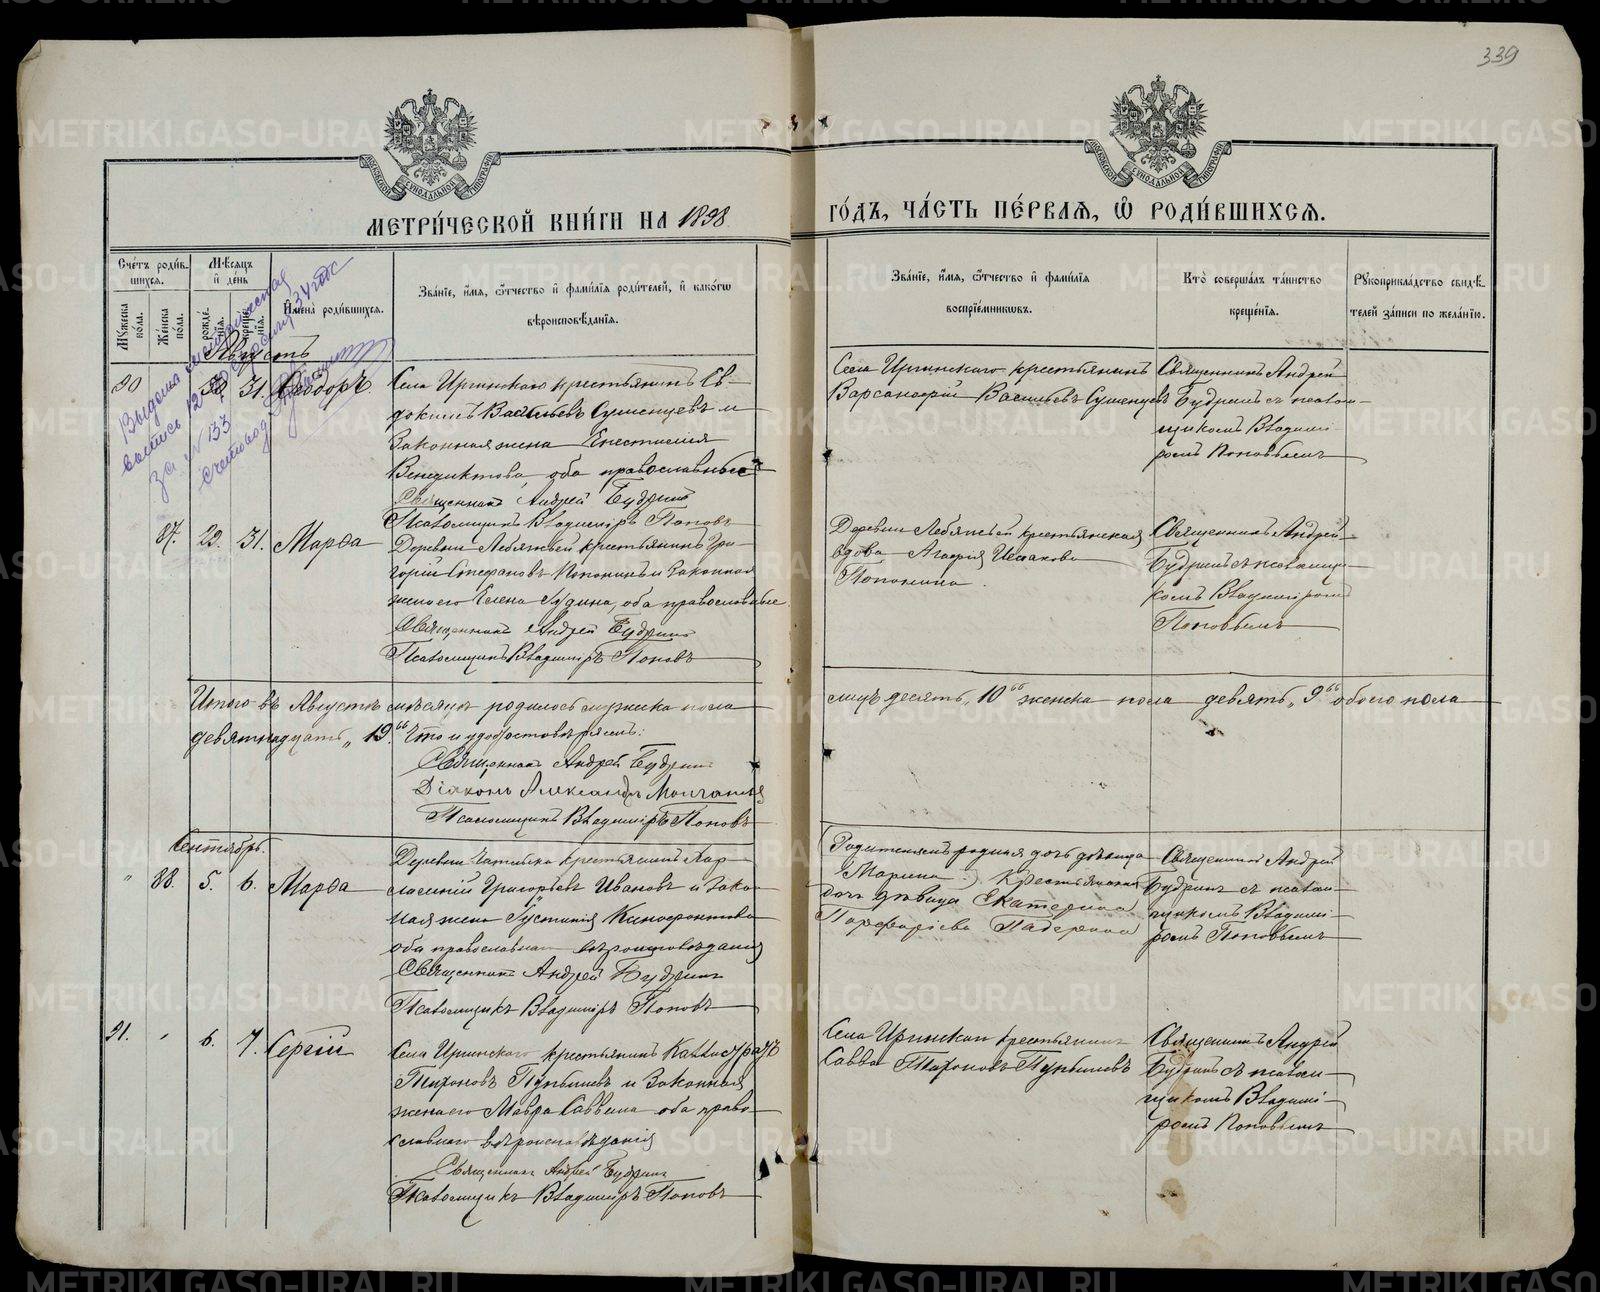 339
МЕТРИ́ЧЕСКОЙ КНИ́ГИ НА 1898
ГО́ДЪ, ЧА́СТЬ ПЕ́РВАѦ, Ѡ҆ РОДИ́ВШИХСѦ.
Счётъ роди́в-
шихсѧ.
Мѣ́сѧцъ
и҆ де́нь
Мꙋ́жеска по́ла.
Же́нска по́ла.
рожде́нїѧ.
креще́нїѧ.
И҆мена̀ роди́вшихсѧ.
Зва́нїе, и҆́мѧ, ѻ҆́тчество и҆ фамѵ́лїѧ роди́телей, и҆ како́гѡ
вѣроисповѣ́данїѧ.
Зва́нїе, и҆́мѧ, ѻ҆́тчество и҆ фамѵ́лїѧ
воспрїе́мникѡвъ.
Кто̀ соверша́лъ та́инство
креще́нїѧ.
Рꙋкоприкла́дство свидѣ́-
телей за́писи по жела́нїю.
Выдана
выпись
за № 133
счетовод
Августъ
20 30 31. Ѳеодоръ.
Села Иргинскаго крестьянинъ Ев-
докимъ Васильевъ Сушенцевъ и
Законная жена Анастасия
Венедиктова, оба православные
Священникъ Андрей Будринъ
Псаломщикъ Владимiръ Поповъ
Села Иргинскаго крестьянинъ
Варсанофiй Васильевъ Сушенцевъ
Священникъ Андрей
Будринъ съ псалом-
щикомъ Владимi-
ромъ Поповымъ
87. 29. 31. Марѳа
Деревни Лебяжьей крестьянинъ Гри-
горiй Стефановъ Попонинъ и Законная
жена его Елена, оба православные
Священникъ Андрей Будринъ
Псаломщикъ Владимiръ Поповъ
Деревни Лебяжьей крестьянская
вдова Агафия Исакова
Попонина.
Священникъ Андрей
Будринъ съ псаломщи-
комъ Владимiромъ
Поповымъ
Итого въ Августѣ мѣсяцѣ родилось мужеска пола
десять „10“ женска пола девять „9“ обоего пола
девятнадцать „19“ Что и удостовѣряемъ:
Священникъ Андрей Будринъ
Дiаконъ Александръ
Псаломщикъ Владимiръ Поповъ
Сентябрь.
„ 88. 5. 6. Марѳа
Деревни крестьянинъ
Григорьевъ Ивановъ и зако-
ная жена Густинiя Ксенофонтова
оба православнаго вѣроисповѣданiя
Священникъ Андрей Будринъ
Псаломщикъ Владимiръ Поповъ
Родителямъ родная дочь дѣвица
Марина крестьянская
дочь дѣвица Екатерина
Порфирiева Падерина
Священникъ Андрей
Будринъ съ псалом-
щикомъ Владимi-
ромъ Поповымъ
21. „ 6. 7. Сергiй
Села Иргинскаго крестьянинъ
Тихоновъ Пупышевъ и Законная
жена его Мавра Саввина оба право-
славнаго вѣроисповѣданiя
Священникъ Андрей Будринъ
Псаломщикъ Владимiръ Поповъ
Села Иргинскаго крестьянинъ
Савва Тихоновъ Пупышевъ
Священникъ Андрей
Будринъ съ псалом-
щикомъ Владимi-
ромъ Поповымъ
METRIKI.GASO-URAL.RU